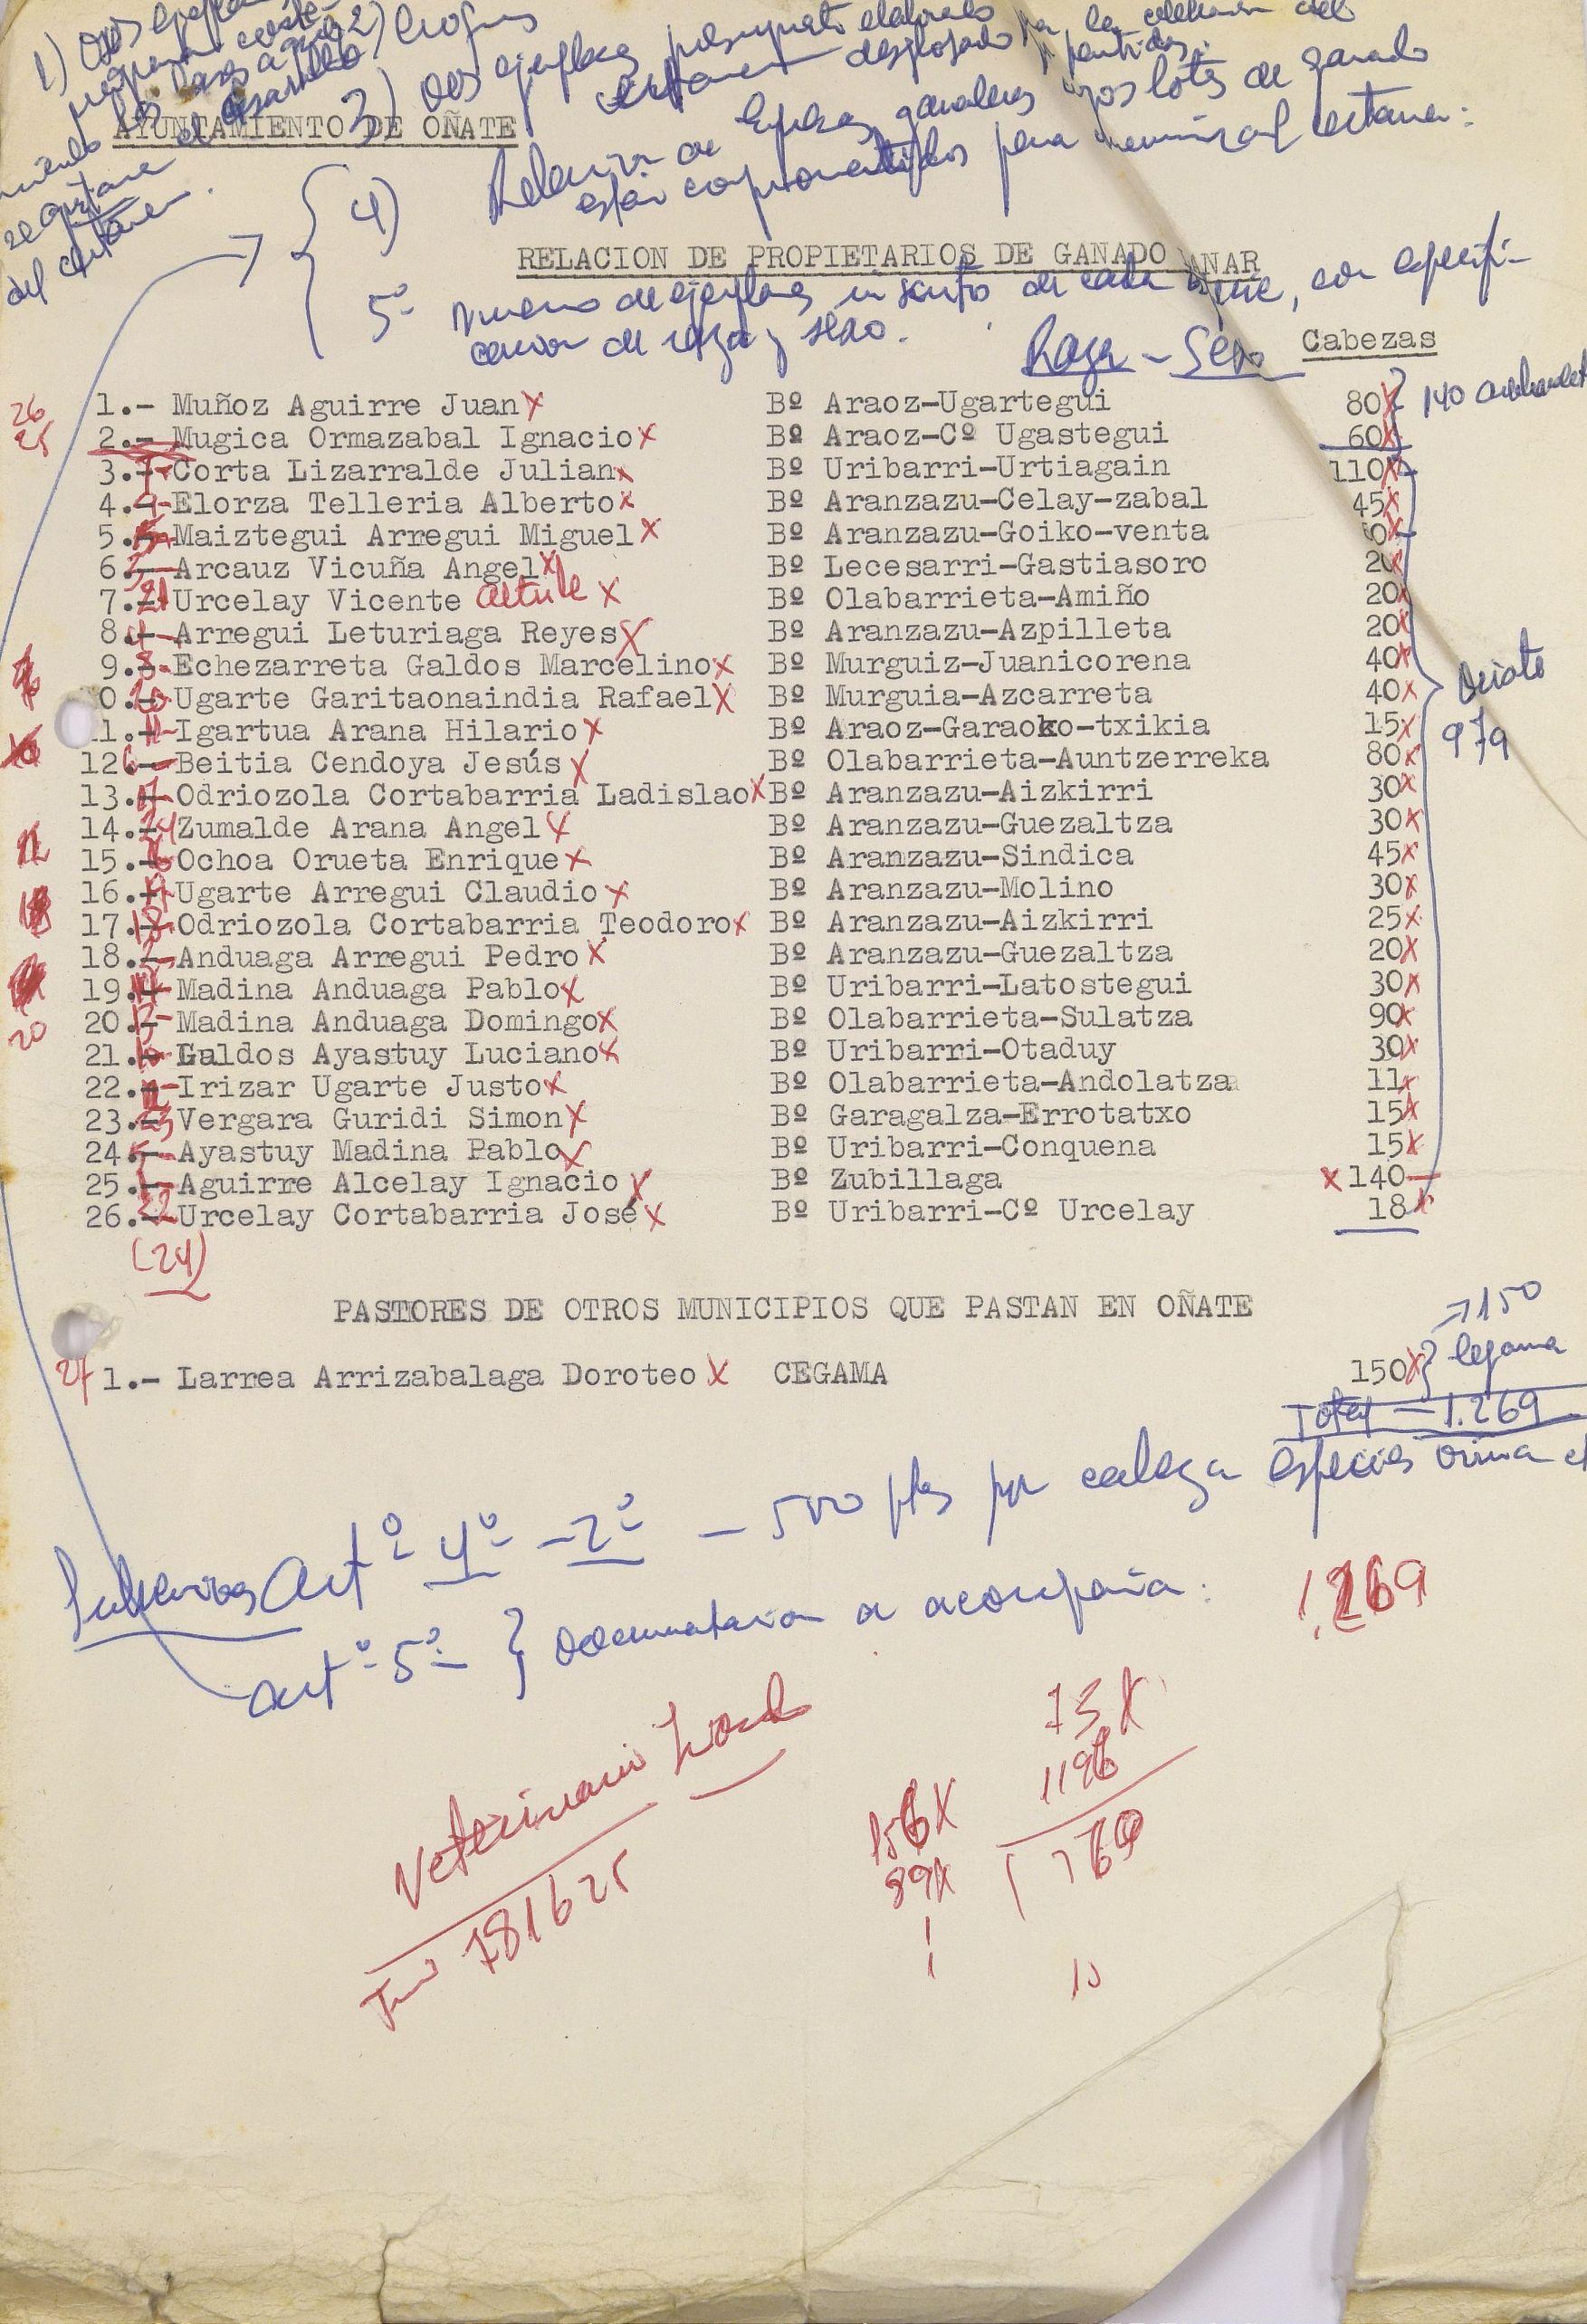 1) Dos
2)
3) Dos ejemplares presupuesto elaborado por la celebracion del
certamen desglosado p partidas.
del certamen.
AYUNTAMIENTO DE OÑATE
4) Relacion de Empresas ganaderas cuyos lotes de ganado
estan comprometidos para concurrir al certamen:
RELACION DE PROPIETARIOS DE GANADO LANAR
5º Numero de ejemplares inscritos de cada especie, con especifi-
cacion de raza y sexo.
Raza - Sexo Cabezas
26 1.- Muñoz Aguirre Juan x Bº Araoz-Ugartegui 80 x } 140
25 2.- Mugica Ormazabal Ignacio x Bº Araoz-Cº Ugastegui 60 x
3.- Corta Lizarralde Julian x Bº Uribarri-Urtiagain 110 x
4.- Elorza Telleria Alberto x Bº Aranzazu-Celay-zabal 45 x
5.- Maiztegui Arregui Miguel x Bº Aranzazu-Goiko-venta 0 x
6.- Arcauz Vicuña Angel x Bº Lecesarri-Gastiasoro 20 x
7.- 21 Urcelay Vicente Altube x Bº Olabarrieta-Amiño 20 x
8.- 4 Arregui Leturiaga Reyes x Bº Aranzazu-Azpilleta 20 x
9.- 8 Echezarreta Galdos Marcelino x Bº Murguiz-Juanicorena 40 x
0.- 20 Ugarte Garitaonaindia Rafael x Bº Murguia-Azcarreta 40 x } Oñate
1.- 11 Igartua Arana Hilario x Bº Araoz-Garaoko-txikia 15 x 979
12.- 6 Beitia Cendoya Jesús x Bº Olabarrieta-Auntzerreka 80 x
13.- 17 Odriozola Cortabarria Ladislao x Bº Aranzazu-Aizkirri 30 x
14.- 24 Zumalde Arana Angel x Bº Aranzazu-Guezaltza 30 x
15.- 16 Ochoa Orueta Enrique x Bº Aranzazu-Sindica 45 x
16.- Ugarte Arregui Claudio x Bº Aranzazu-Molino 30 x
17.- 18 Odriozola Cortabarria Teodoro x Bº Aranzazu-Aizkirri 25 x
18.- 2 Anduaga Arregui Pedro x Bº Aranzazu-Guezaltza 20 x
19.- 14 Madina Anduaga Pablo x Bº Uribarri-Latostegui 30 x
20 20.- 13 Madina Anduaga Domingo x Bº Olabarrieta-Sulatza 90 x
21.- 10 Galdos Ayastuy Luciano x Bº Uribarri-Otaduy 30 x
22.- 12 Irizar Ugarte Justo x Bº Olabarrieta-Andolatza 11 x
23.- 23 Vergara Guridi Simon x Bº Garagalza-Errotatxo 15 x
24.- 5 Ayastuy Madina Pablo x Bº Uribarri-Conquena 15 x
25.- 1 Aguirre Alcelay Ignacio x Bº Zubillaga x 140
26.- 22 Urcelay Cortabarria José x Bº Uribarri-Cº Urcelay 18 x
(24)
PASTORES DE OTROS MUNICIPIOS QUE PASTAN EN OÑATE
→ 150
27 1.- Larrea Arrizabalaga Doroteo x CEGAMA 150 x } Cegama
Total - 1.269
Subvenciones Artº 4º - 2º - 500 pts por cabeza especies ovina
artº 5º } Documentacion a acompañar:
1.269
Veterinario Zona
Tno 781625
73 x
1196
1269
156 x
89 x
1
1
10